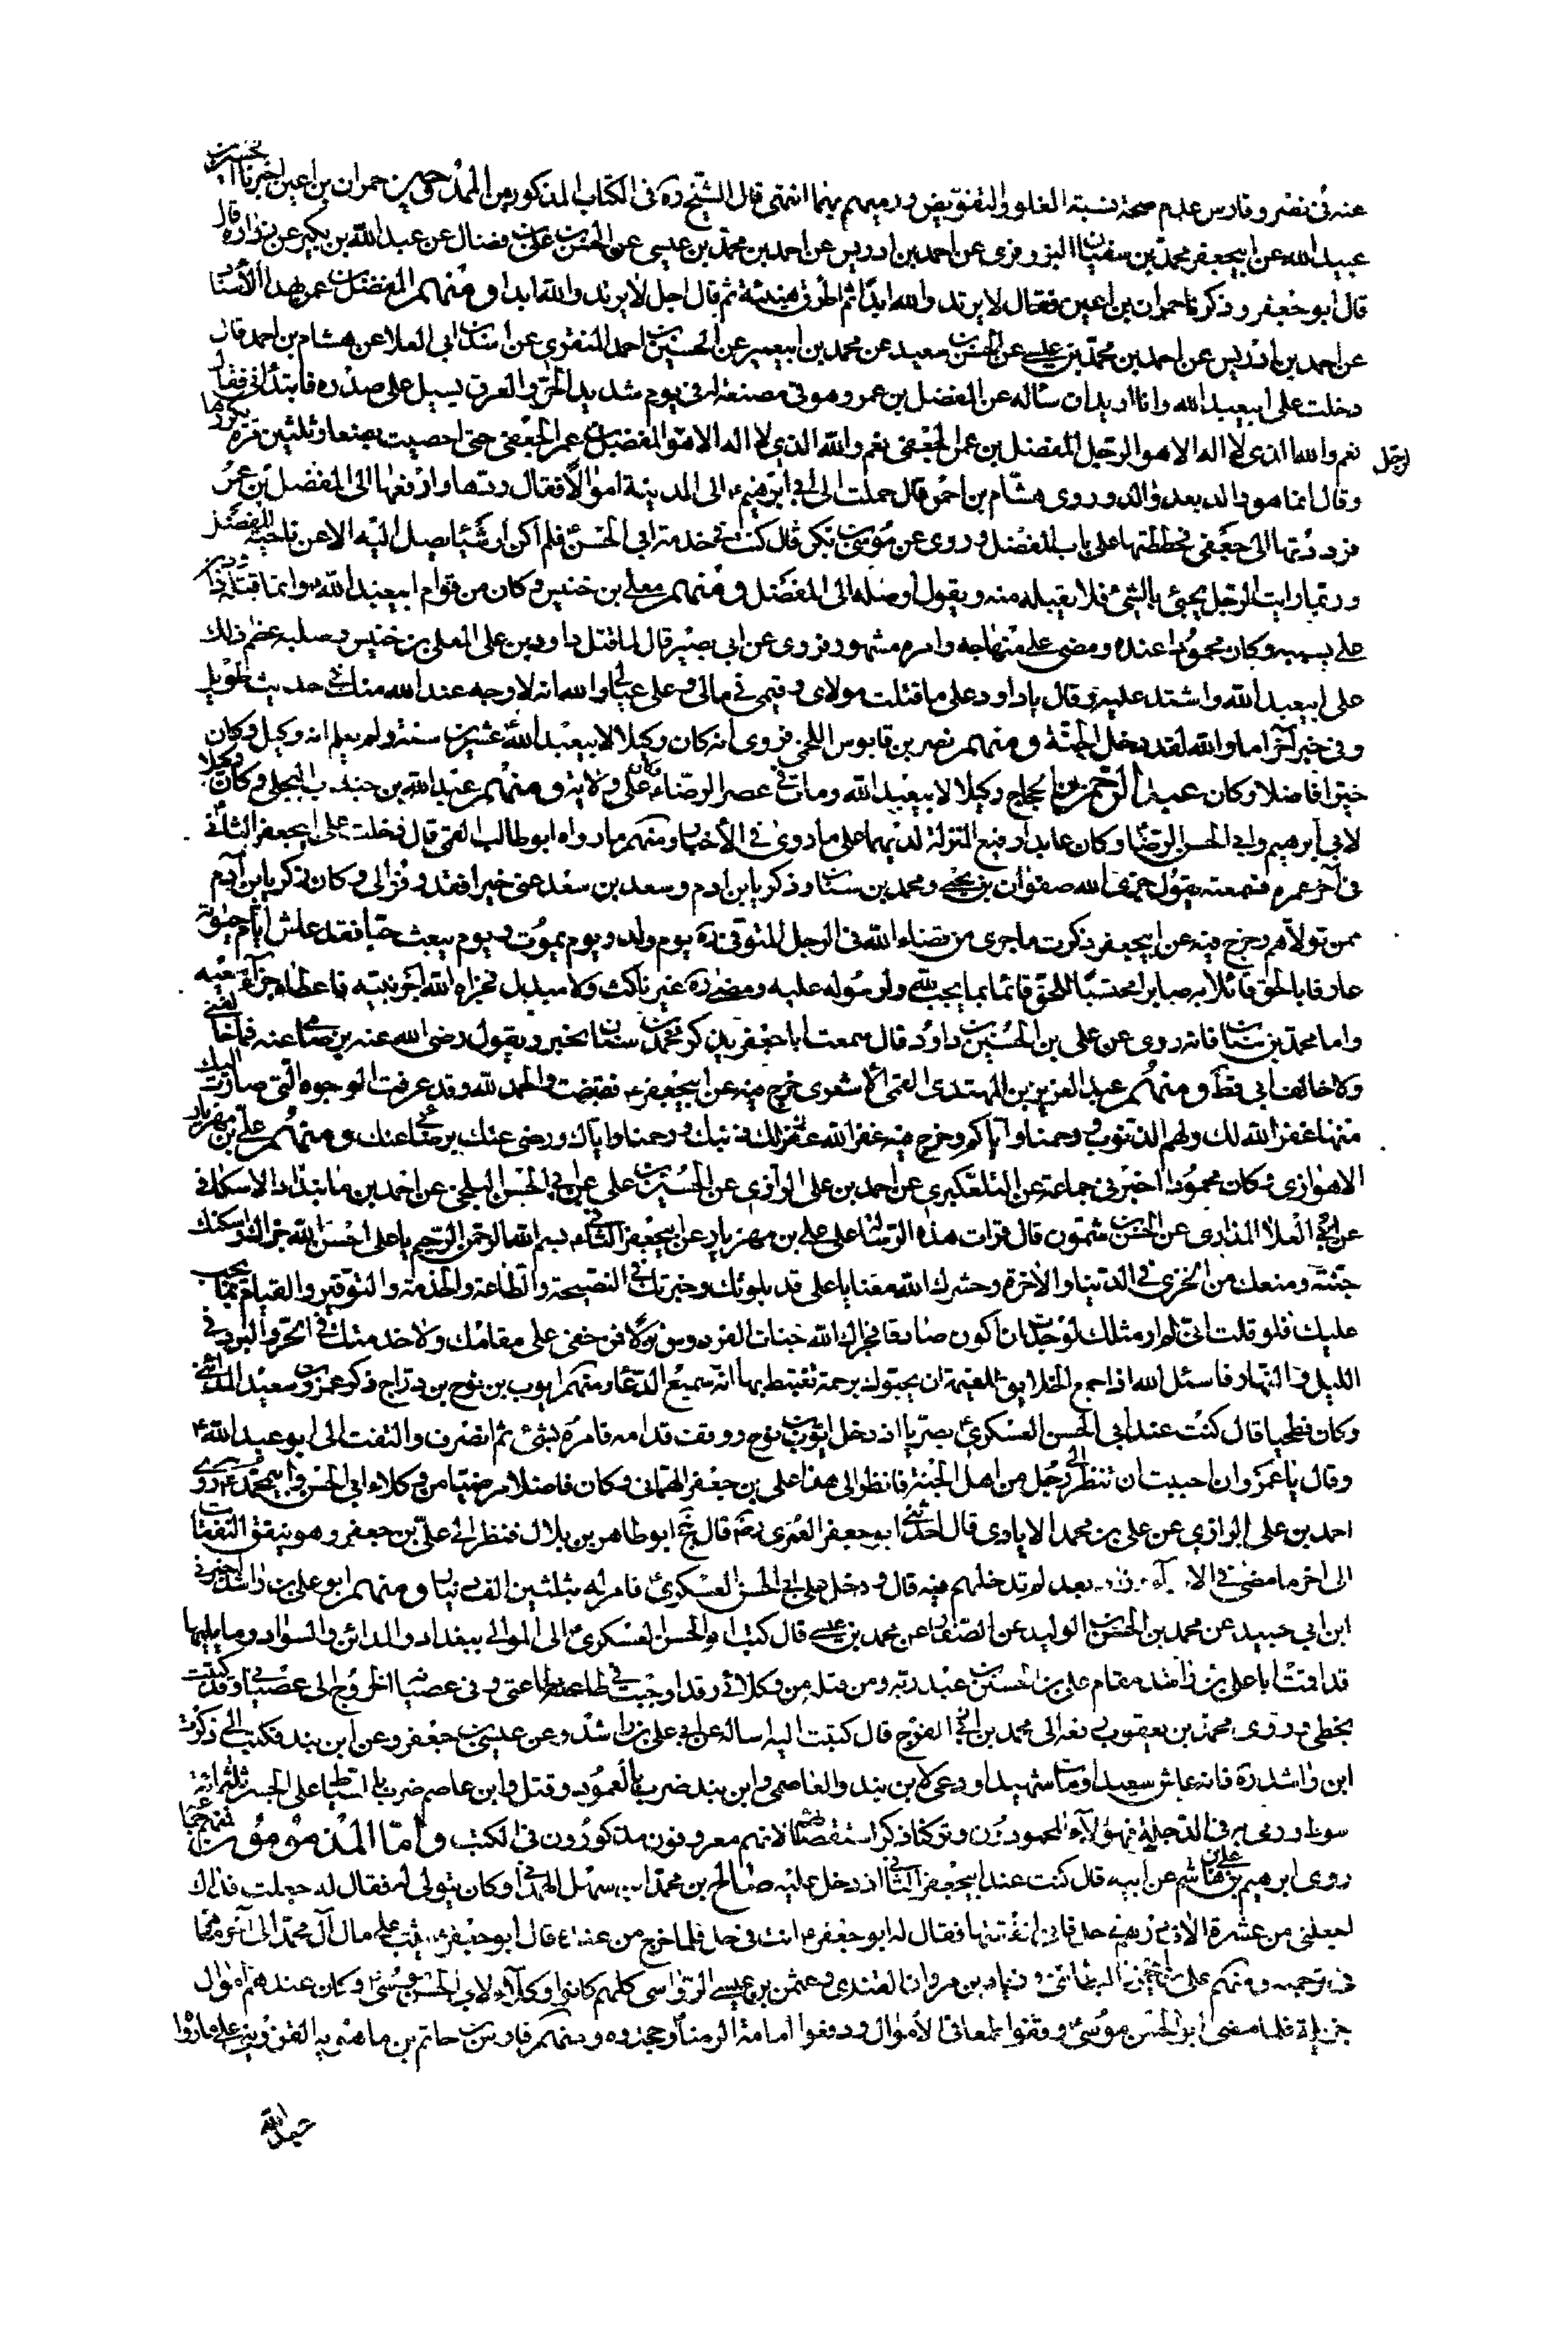 عنه في نصر وفارس علم صحة نسبة الغلو والتفويض ورميهم بهما انتهى قال الشيخ ره في الكتاب المذكور من الممدوحين حمران بن اعين اخبرنا الحسين بن
عبيد الله عن ابيجعفر محمد بن سفيان البزوفري عن احمد بن ادريس عن احمد بن محمد بن عيسى عن الحسن بن علي بن فضال عن عبد الله بن بكير عن زرارة قال
قال ابو جعفر وذكرنا حمران بن اعين فقال لا يرتد والله ابدا ثم اطرق هنيئة ثم قال اجل لا يرتد والله ابدا ومنهم المفضل بن عمر بهذا الاسناد
عن احمد بن ادريس عن احمد بن محمد بن عيسى عن الحسين بن سعيد عن محمد بن ابيعمير عن الحسين بن احمد المنقري عن اسد بن ابي العلا عن هشام بن احمد قال
دخلت على ابيعبد الله وانا اريد ان سئاله عن المفضل بن عمر وهو في مصنعة له في يوم شديد الحر والعرق يسيل على صدره فابتدأني فقال
نعم والله الذي لا اله الا هو الرجل المفضل بن عمر الجعفي نعم والله الذي لا اله الا هو المفضل بن عمر الجعفي حتى احصيت بضعا وثلثين مرة يكررها
رجل
وقال انما هو والد بعد والد وروى هشام بن احمر قال حملت الى ابي ابرهيم ع الى المدينة اموالا فقال ردها وارفعها الى المفضل بن عمر
فرددتها الى جعفي فحططتها على باب المفضل وروى عن موسى بن بكر قال كنت في خدمة ابي الحسن ع فلم اكن ارى شيئا يصل اليه الا عن ناحية المفضل
وربما رايت الرجل يجئ بالشئ فلا يقبله منه ويقول اوصله الى المفضل ومنهم معلى بن خنيس وكان من قوام ابيعبد الله ع وانما قتله داود بن
علي بسببه وكان محمودا عنده ومضى على منهاجه وامره مشهور فروى عن ابي بصير قال لما قتل داود بن علي المعلى بن خنيس وصلبه عظم ذلك
على ابيعبد الله واشتد عليه وقال يا داود على ما قتلت مولاي وقيمي في مالي وعلى عيالي والله انه لاوجه عند الله منك في حديث طويل
وفي خبر آخر اما والله لقد دخل الجنة ومنهم نصر بن قابوس اللخمي فروى انه كان وكيلا لابيعبد الله ع عشرين سنة ولم يعلم انه وكيل وكان
خيرا فاضلا وكان عبد الرحمن بن الحجاج وكيلا لابيعبد الله ومات في عصر الرضا ع على ولايته ومنهم عبد الله بن جندب البجلي وكان وكيلا
لابي ابرهيم وابي الحسن الرضا وكان عابدا رفيع المنزلة لديهما على ما روى في الأخبار ومنهم ما رواه ابو طالب القمي قال دخلت على ابيجعفر الثاني
في آخر عمره فسمعته يقول جزى الله صفوان بن يحيى ومحمد بن سنان وزكريا بن ادم وسعد بن سعد عني خيرا فقد وفوا لي وكان زكريا بن آدم
ممن تولاهم وخرج فيه عن ابيجعفر ذكرت ما جرى من قضاء الله في الرجل المتوفى ره يوم ولد ويوم يموت ويوم يبعث حيا فقد عاش ايام حيوته
عارفا بالحق قائلا به صابرا محتسبا للحق قائما بما يجب لله ولرسوله عليه ومضى ره غير ناكث ولا مبدل فجزاه الله اجر نيته واعطاه جزاء سعيه
واما محمد بن سنان فانه روى عن علي بن الحسين بن داود قال سمعت ابا جعفر يذكر محمد بن سنان بخير ويقول رضي الله عنه برضائي عنه فما خالفني
ولا خالف ابي قط ومنهم عبد العزيز بن المهتدي القمي الاشعري خرج فيه عن ابيجعفر ع قبضت والحمد لله وقد عرفت الوجوه التي صارت اليك
منها غفر الله لك ولهم الذنوب ورحمنا واياكم وخرج فيه غفر الله لك ذنبك ورحمنا واياك ورضي عنك برضائي عنك ومنهم علي بن مهزيار
الاهوازي وكان محمودا اخبرني جماعة عن التلعكبري عن احمد بن علي الرازي عن الحسين بن علي عن ابي الحسن البلخي عن احمد بن مابنداد الاسكافي
عن ابي العلا المذاري عن الحسن بن شمون قال قرات هذه الرسالة على علي بن مهزيار عن ابيجعفر الثاني بسم الله الرحمن الرحيم يا علي احسن الله جزاك واسكنك
جنته ومنعك من الخزي في الدنيا والآخرة وحشرك الله معنا يا علي قد بلوتك وخبرتك في النصيحة والطاعة والخدمة والتوقير والقيام بما يجب
عليك فلو قلت اني لم ار مثلك لرجوت ان اكون صادقا فجزاك الله جنات الفردوس نزلا فما خفي علي مقامك ولا خدمتك في الحر والبرد في
الليل والنهار فاسئل الله اذا جمع الخلايق للقيمة ان يحبوك برحمة تغتبط بها انه سميع الدعاء ومنهم ايوب بن نوح بن دراج ذكر عمرو بن سعيد المدائني
وكان فطحيا قال كنت عند ابي الحسن العسكري ع بصريا اذ دخل ايوب بن نوح ووقف قدامه فامره بشئ ثم انصرف والتفت الى ابو عبد الله ع
وقال يا عمرو ان احببت ان تنظر الى رجل من اهل الجنة فانظر الى هذا علي بن جعفر الهماني وكان فاضلا مرضيا من وكلاء ابي الحسن وابيمحمد ع روى
احمد بن علي الرازي عن علي بن محمد الايادي قال حدثني ابو جعفر العمري ره قال حج ابو طاهر بن بلال فنظر الى علي بن جعفر وهو ينفق النفقات
الى اخر ما مضى في بعد لم تدخلهم فيه قال ودخل على ابي الحسن العسكري ع فامر له بثلثين الف دينار ومنهم ابو علي بن راشد اخبرني
ابن ابي جيد عن محمد بن الحسن بن الوليد عن الصفار عن محمد بن عيسى قال كتب ابو الحسن العسكري ع الى الموالي ببغداد والمدائن والسواد وما يليها
قد اقمت ابا علي بن راشد مقام علي بن الحسين بن عبد ربه ومن قبله من وكلائي وقد اوجبت في طاعته طاعتي وفي عصيانه الخروج الى عصياني وكتبت
بخطي وروى محمد بن يعقوب رفعه الى محمد بن الفرج قال كتبت اليه اساله عن ابي علي بن راشد وعن عيسى بن جعفر وعن ابن بند فكتب الي ذكرت
ابن راشد ره فانه عاش سعيدا ومات شهيدا ودعى لابن بند والعاصمي وابن بند ضرب بالعمود وقتل وابن عاصم ضرب بالسياط على الجسر ثلثمائة
سوط ورمي به في الدجلة فهؤلاء المحمودون وتركنا ذكر استقصائهم لانهم معروفون مذكورون في الكتب وأما المذمومون فمنهم جماعة
روى ابرهيم بن هاشم عن ابيه قال كنت عند ابيجعفر الثاني اذ دخل عليه صالح بن محمد بن سهل الهمداني وكان يتولى له فقال له جعلت فداك
اجعلني من عشرة الاف درهم في حل فاني انفقتها فقال له ابو جعفر ع انت في حل فلما خرج من عنده قال ابو جعفر ع يثب على مال آل محمد الى آخر ما
في ترجمته ومنهم علي بن ابي حمزة البطائني وزياد بن مروان القندي وعثمن بن عيسى الرواسي كلهم كانوا وكلاء لابي الحسن موسى ع وكان عندهم اموال
جزيلة فلما مضى ابو الحسن موسى ع وقفوا طمعا في الأموال ودفعوا امامة الرضا ع وجحدوه ومنهم فارس بن حاتم بن ماهويه القزويني على ما رواه
عبد الله